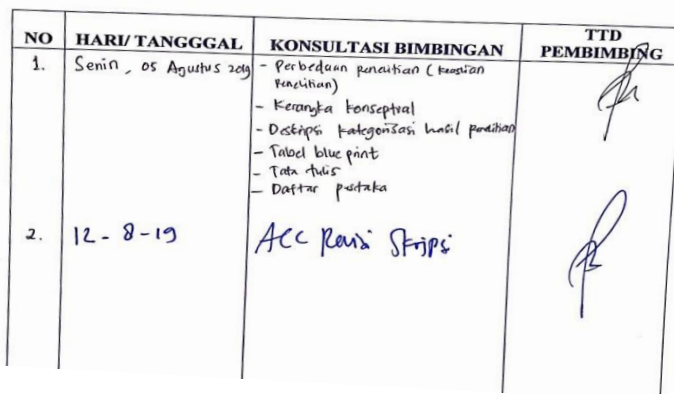 NO HARI/ TANGGGAL KONSULTASI BIMBINGAN TTD PEMBIMBING
1. Senin, 05 Agustus 2019 - Perbedaan penelitian (keaslian
penelitian)
- Kerangka konseptual
- Deskripsi kategorisasi hasil penelitian
- Tabel blue print
- Tata tulis
- Daftar pustaka
2. 12-8-19 ACC Revisi Skripsi